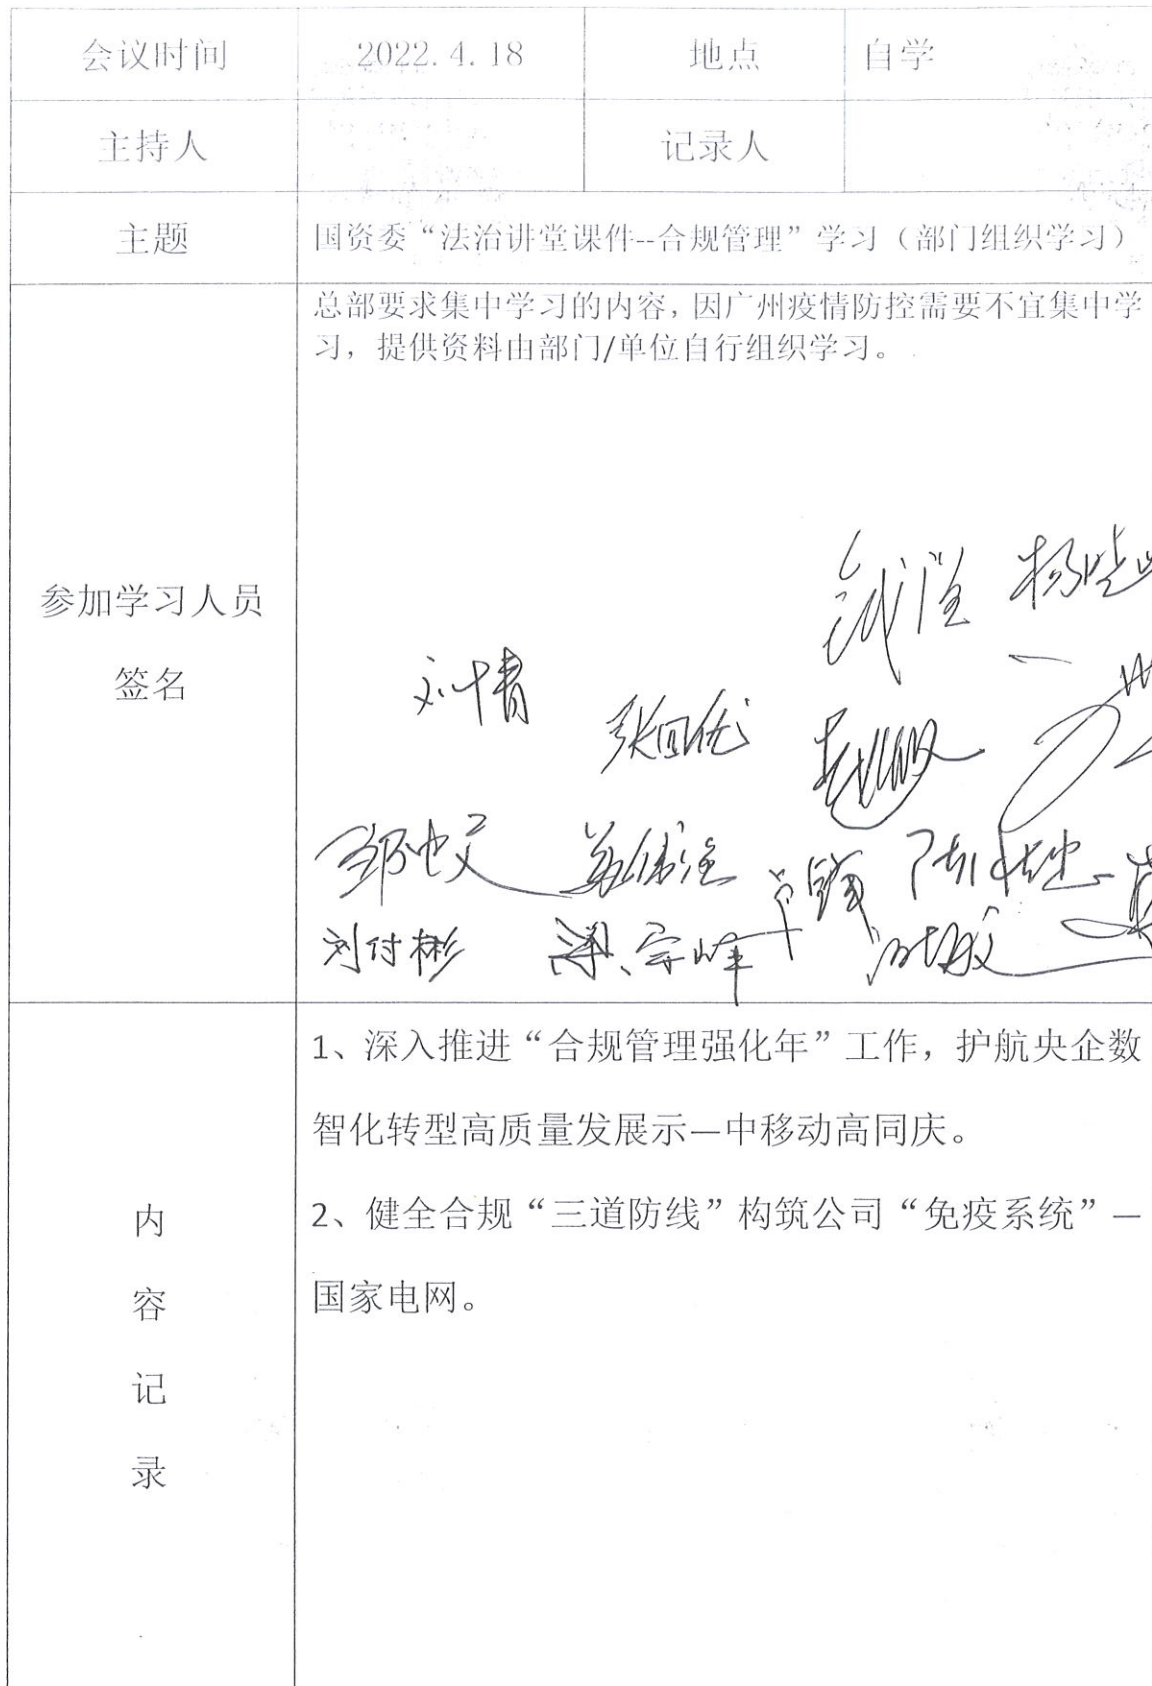 会议时间 2022.4.18 地点 自学
主持人 记录人
主题 国资委“法治讲堂课件--合规管理”学习（部门组织学习）
总部要求集中学习的内容，因广州疫情防控需要不宜集中学
习，提供资料由部门/单位自行组织学习。
参加学习人员
签名
刘付彬 梁宗峰
1、深入推进“合规管理强化年”工作，护航央企数
智化转型高质量发展示—中移动高同庆。
2、健全合规“三道防线”构筑公司“免疫系统”—
国家电网。
内
容
记
录